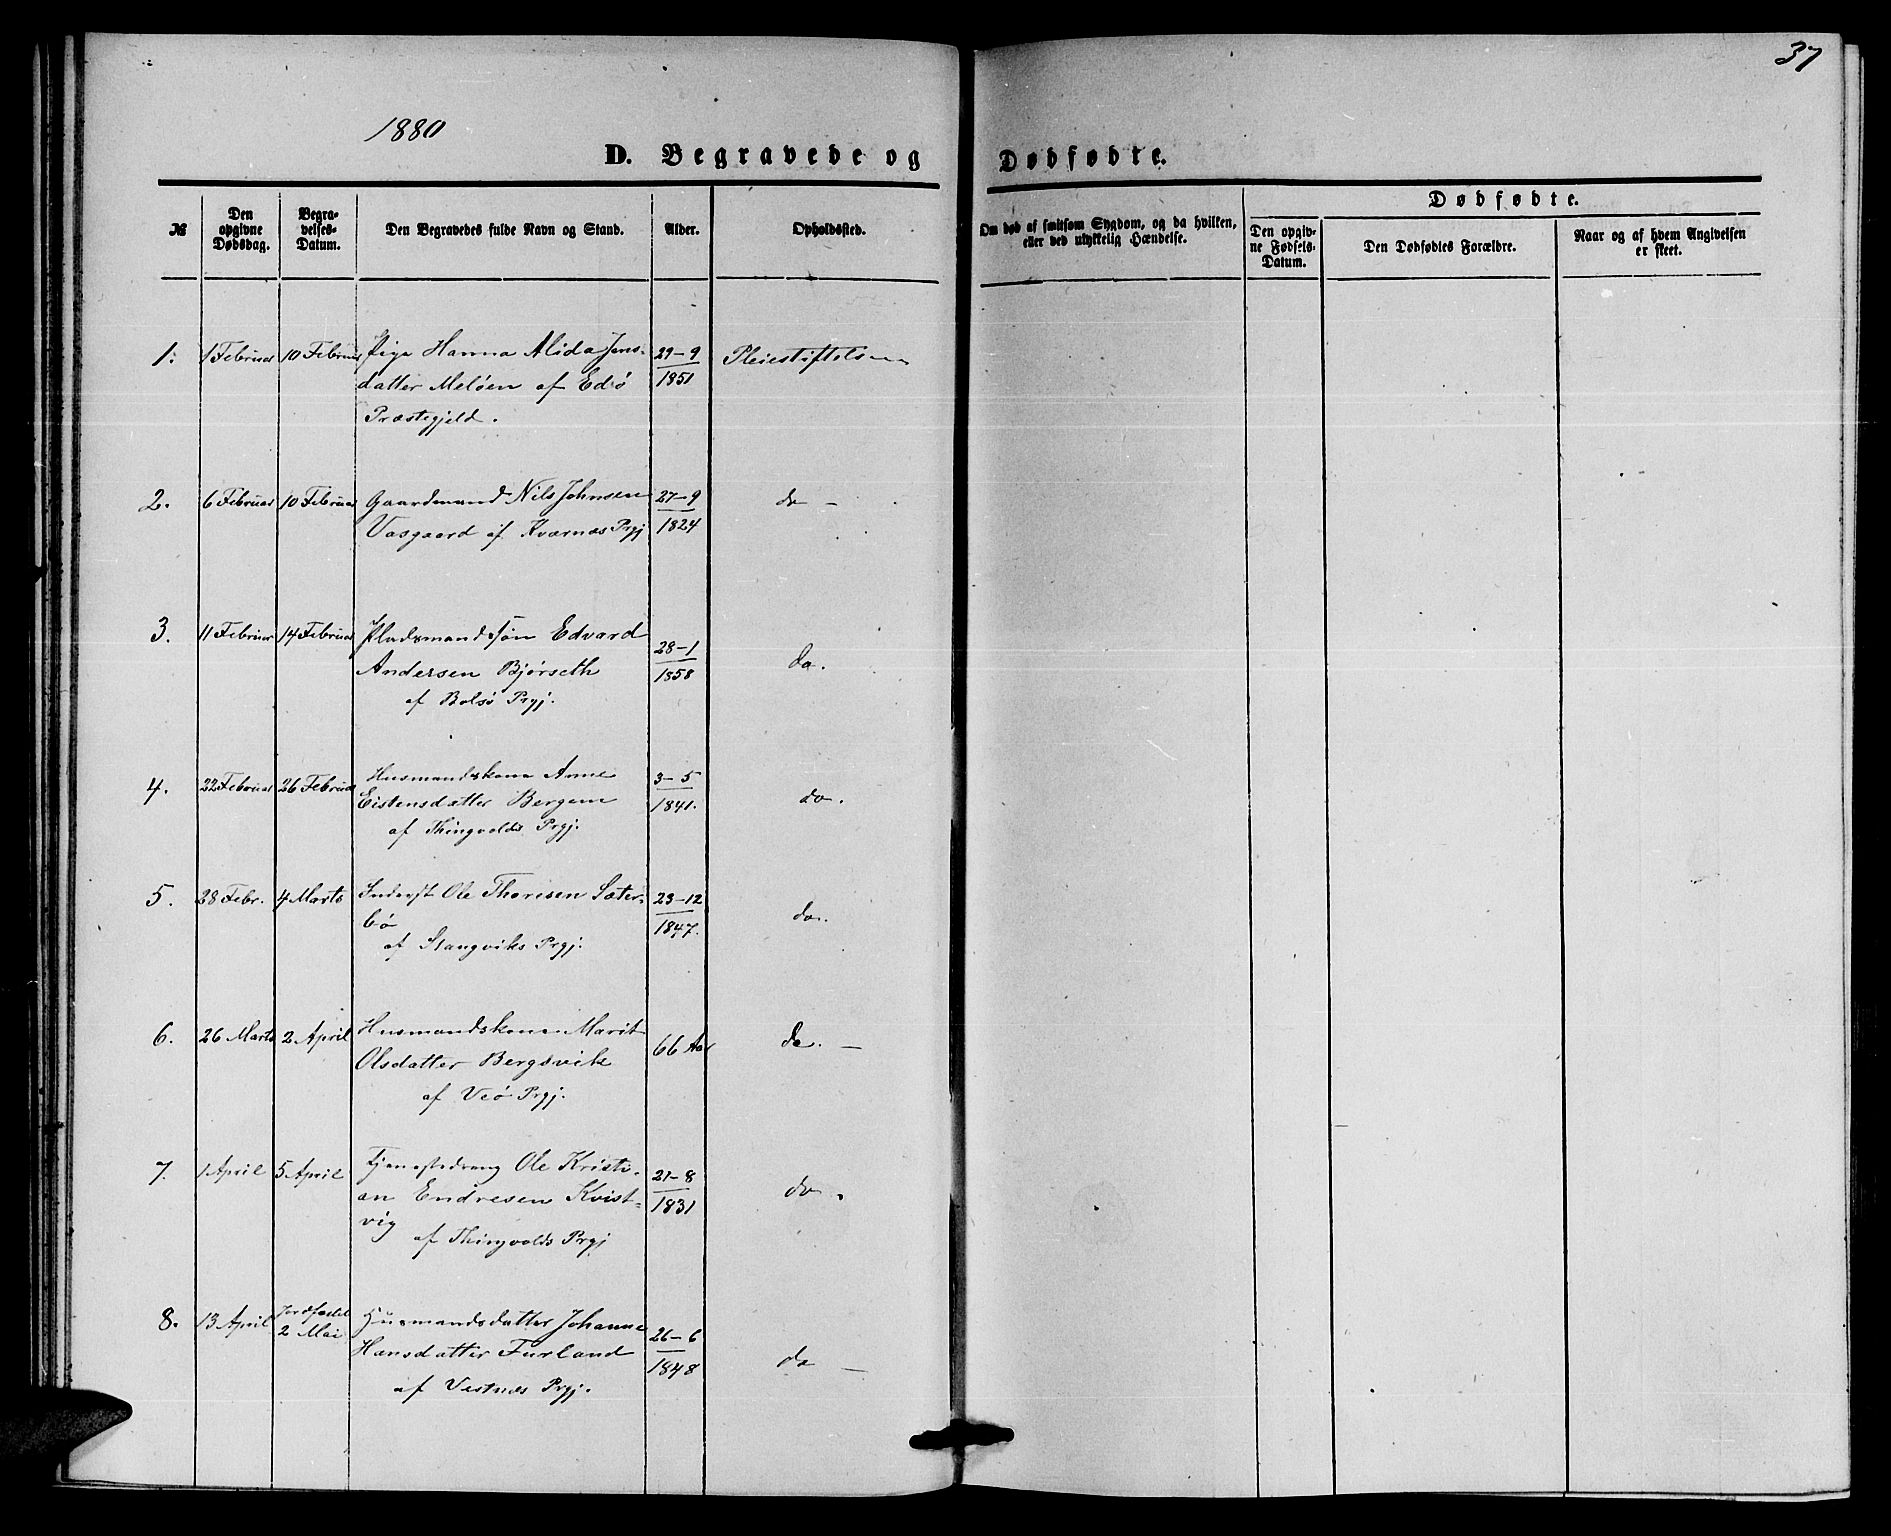 37
1880
D. Begravede og Dødfødte.
№
Den opgivne Dødsdag.
Begravelses-Datum.
Den Begravedes fulde Navn og Stand.
Alder.
Opholdssted.
Om død af smitsom Sygdom, og da hvilken, eller ved ulykkelig Hændelse.
Dødfødte.
Den opgivne Fødsels-Datum.
Den Dødfødtes Forældre.
Naar og af hvem Angivelsen er skeet.
1. 1 Februar 10 Februar Pige Hanna Alida Jens- 29-9 Pleiestiftelsen
datter Meløen af Edø 1851
Præstegjeld.
2. 6 Februar 10 Februar Gaardmand Nils Johnsen 27-9 do -
Vasgaard af Kværnæs Prgj 1824
3. 11 Februar 14 Februar Pladsmandssøn Edvard 28-1 do.
Andersen Bjørseth 1858
af Bolsø Prgj.
4. 22 Februar 26 Februar Husmandskone Anne 3-5 do.
Eistensdatter Bergem 1841.
af Thingvolds Prgj.
5. 28 Febr. 4 Marts Inderst Ole Thorisen Sæter- 23-12 do.
bø 1847.
af Stangviks Prgj.
6. 26 Marts 2 April Husmandskone Marit 66 Aar do. -
Olsdatter Bergsvik
af Veø Prgj.
7. 1 April 5 April Tjenestedreng Ole Kristi- 21-8 do.
an Endresen Kvist- 1831
vig
af Thingvolds Prgj
8. 13 April Jordfæstet 2 Mai Husmandsdatter Johanne 26-6 do -
Hansdatter Furland 1848
af Vestnæs Prgj.